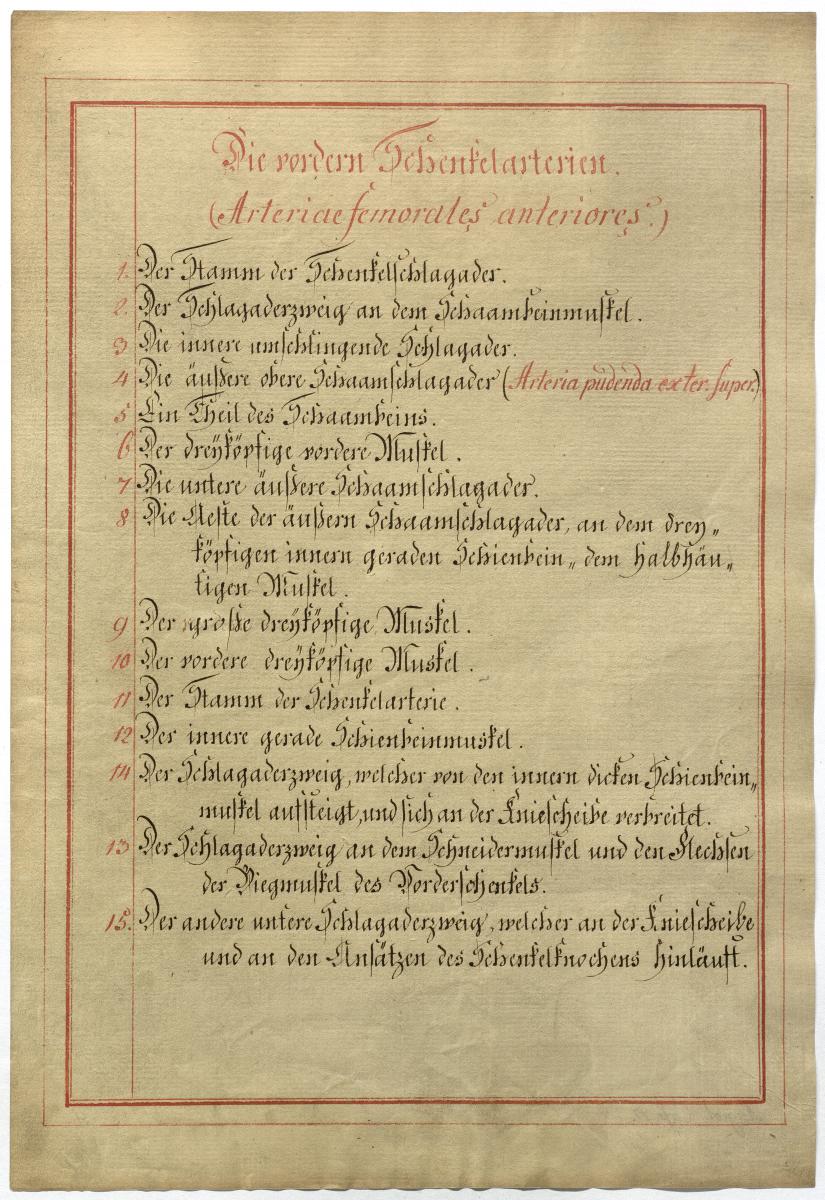 Die vordern Schenkelarterien.
(Arteriae femorales anteriores.)
1. Der Stamm der Schenkelschlagader.
2. Der Schlagaderzweig an dem Schaambeinmuskel.
3 Die innere umschlingende Schlagader.
4 Die äußere obere Schaamschlagader (Arteria pudenda exter. super.)
5 Ein Theil des Schaambeins.
6 Der dreyköpfige vordere Muskel.
7 Die untere äußere Schaamschlagader.
8 Die Aeste der äußern Schaamschlagader, an dem drey„
köpfigen innern geraden Schienbein„ dem halbhäu„
tigen Muskel.
9 Der große dreyköpfige Muskel.
10 Der vordere dreyköpfige Muskel.
11 Der Stamm der Schenkelarterie.
12 Der innere gerade Schienbeinmuskel.
14 Der Schlagaderzweig, welcher von den innern dicken Schienbein„
muskel aufsteigt, und sich an der Kniescheibe verbreitet.
13 Der Schlagaderzweig an dem Schneidermuskel und den Flechsen
der Biegmuskel des Vorderschenkels.
15. Der andere untere Schlagaderzweig, welcher an der Kniescheibe
und an den Ansätzen des Schenkelknochens hinläuft.